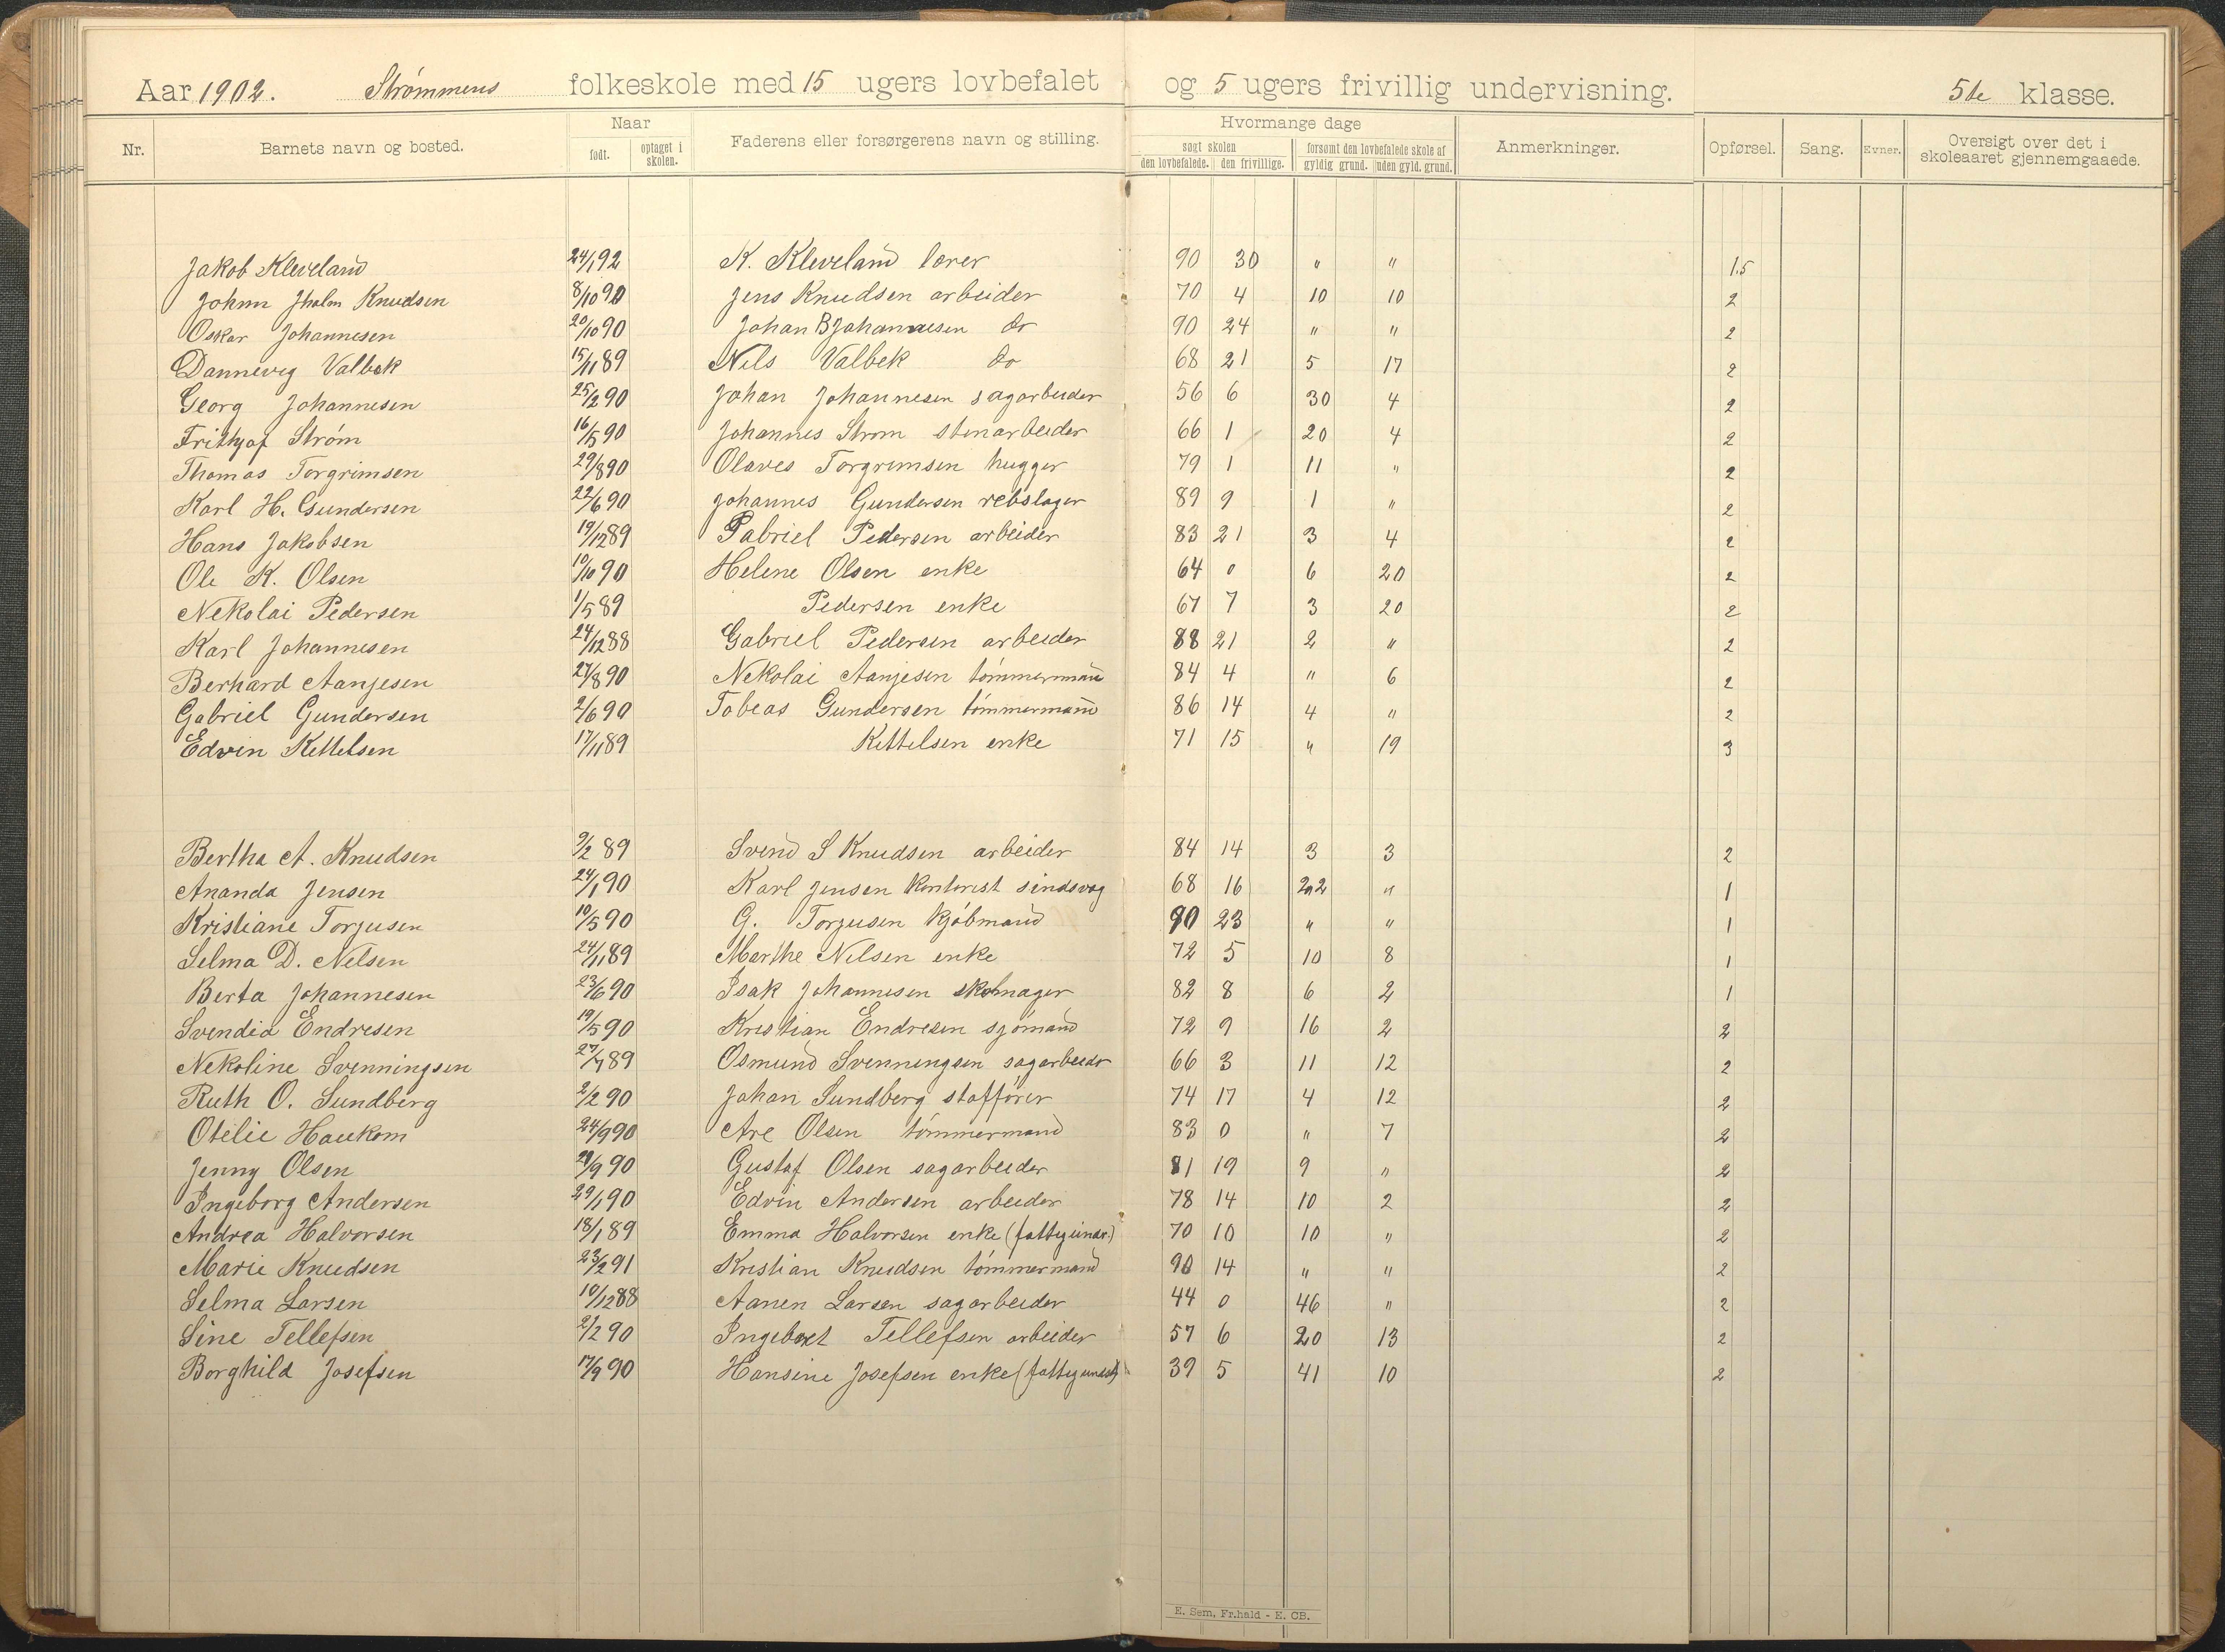 Aar 1902. Strømmens folkeskole med 15 ugers lovbefalet og 5 ugers frivillig undervisning. 5te klasse.
Nr. Barnets navn og bosted. Naar født. optaget i skolen. Faderens eller forsørgerens navn og stilling. Hvormange dage søgt skolen den lovbefalede. den frivillige. forsømt den lovbefalede skole af gyldig grund. uden gyld. grund. Anmerkninger. Opførsel. Sang. Evner. Oversigt over det i skoleaaret gjennemgaaede.
Jakob Kleveland 24/1 92 K. Kleveland lærer 90 30 " " 1.5
Johan Jholm Knudsen 8/10 90 Jens Knudsen arbeider 70 4 10 10 2
Oskar Johannesen 20/10 90 Johan B Johannesen do 90 24 " " 2
Dannevig Valbek 15/11 89 Nils Valbek do 68 21 5 17 2
Georg Johannesen 25/2 90 Johan Johannesen sagarbeider 56 6 30 4 2
Frithjof Strøm 16/5 90 Johannes Strøm stenarbeider 66 1 20 4 2
Thomas Torgrimsen 29/8 90 Olaves Torgrimsen hugger 79 1 11 " 2
Karl H. Gundersen 22/6 90 Johannes Gundersen rebslager 89 9 1 " 2
Hans Jakobsen 19/12 89 Gabriel Pedersen arbeider 83 21 3 4 2
Ole K. Olsen 10/10 90 Helene Olsen enke 64 0 6 20 2
Nekolai Pedersen 1/5 89 Pedersen enke 67 7 3 20 2
Karl Johannesen 24/12 88 Gabriel Pedersen arbeider 88 21 2 " 2
Berhard Aanjesen 27/8 90 Nekolai Aanjesen tømmermand 84 4 " 6 2
Gabriel Gundersen 2/6 90 Tobeas Gundersen tømmermand 86 14 4 " 2
Edvin Kettelsen 17/11 89 Kettelsen enke 71 15 " 19 3
Bertha A. Knudsen 9/2 89 Svend S Knudsen arbeider 84 14 3 3 2
Ananda Jensen 24/1 90 Karl Jensen kontorist sindsvag 68 16 22 " 1
Kristiane Torjusen 10/5 90 G. Torjusen kjøbmand 90 23 " " 1
Selma D. Nelsen 24/11 89 Marthe Nilsen enke 72 5 10 8 1
Berta Johannesen 23/6 90 Isak Johannesen skomager 82 8 6 2 1
Svendia Endresen 19/5 90 Kristian Endresen sjømand 72 9 16 2 2
Nekoline Svenningsen 27/7 89 Osmund Svenningsen sagarbeider 66 3 11 12 2
Ruth O. Sundberg 2/2 90 Johan Sundberg staffører 74 17 4 12 2
Otelie Haukom 24/9 90 Are Olsen tømmermand 83 0 " 7 2
Jenny Olsen 21/9 90 Gustaf Olsen sagarbeider 81 19 9 " 2
Ingeborg Andersen 29/1 90 Edvin Andersen arbeider 78 14 10 2 2
Andrea Halvorsen 18/1 89 Emma Halvorsen enke (fattigunds.) 70 10 10 " 2
Marie Knudsen 23/2 91 Kristian Knudsen tømmermand 90 14 " " 2
Selma Larsen 10/12 88 Aanen Larsen sagarbeider 44 0 46 " 2
Sine Tellefsen 2/2 90 Ingebret Tellefsen arbeider 57 6 20 13 2
Borghild Josefsen 17/9 90 Hansine Josefsen enke (fattigundst) 39 5 41 10 2
E. Sem, Fr.hald - E. CB.